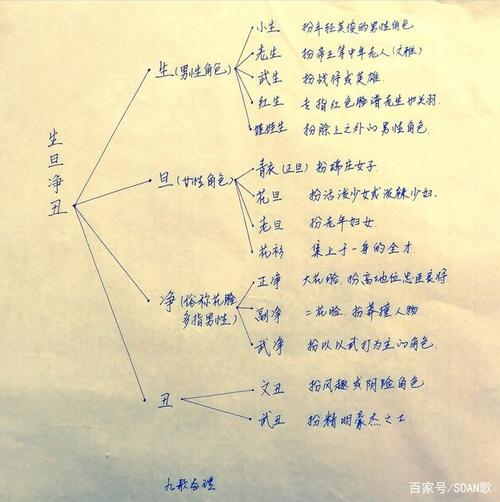 生旦净丑
生(男性角色)
小生 扮年轻英俊的男性角色
老生 扮帝王等中年老人(文雅)
武生 扮战将或英雄
红生 专指红色脸谱老生如关羽.
娃娃生 扮除上之外的男性角色.
旦(女性角色)
青衣(正旦) 扮端庄女子.
花旦 扮活泼少女或泼辣少妇.
老旦 扮老年妇女
花衫 集上于一身的全才.
净(俗称花脸
多指男性)
正净 大花脸,扮高地位忠臣良将
副净 二花脸,扮莽撞人物
武净 扮以以武打为主的角色.
丑
文丑 扮风趣或阴险角色
武丑 扮精明豪杰之士.
九歌
百家号/SOAN歌